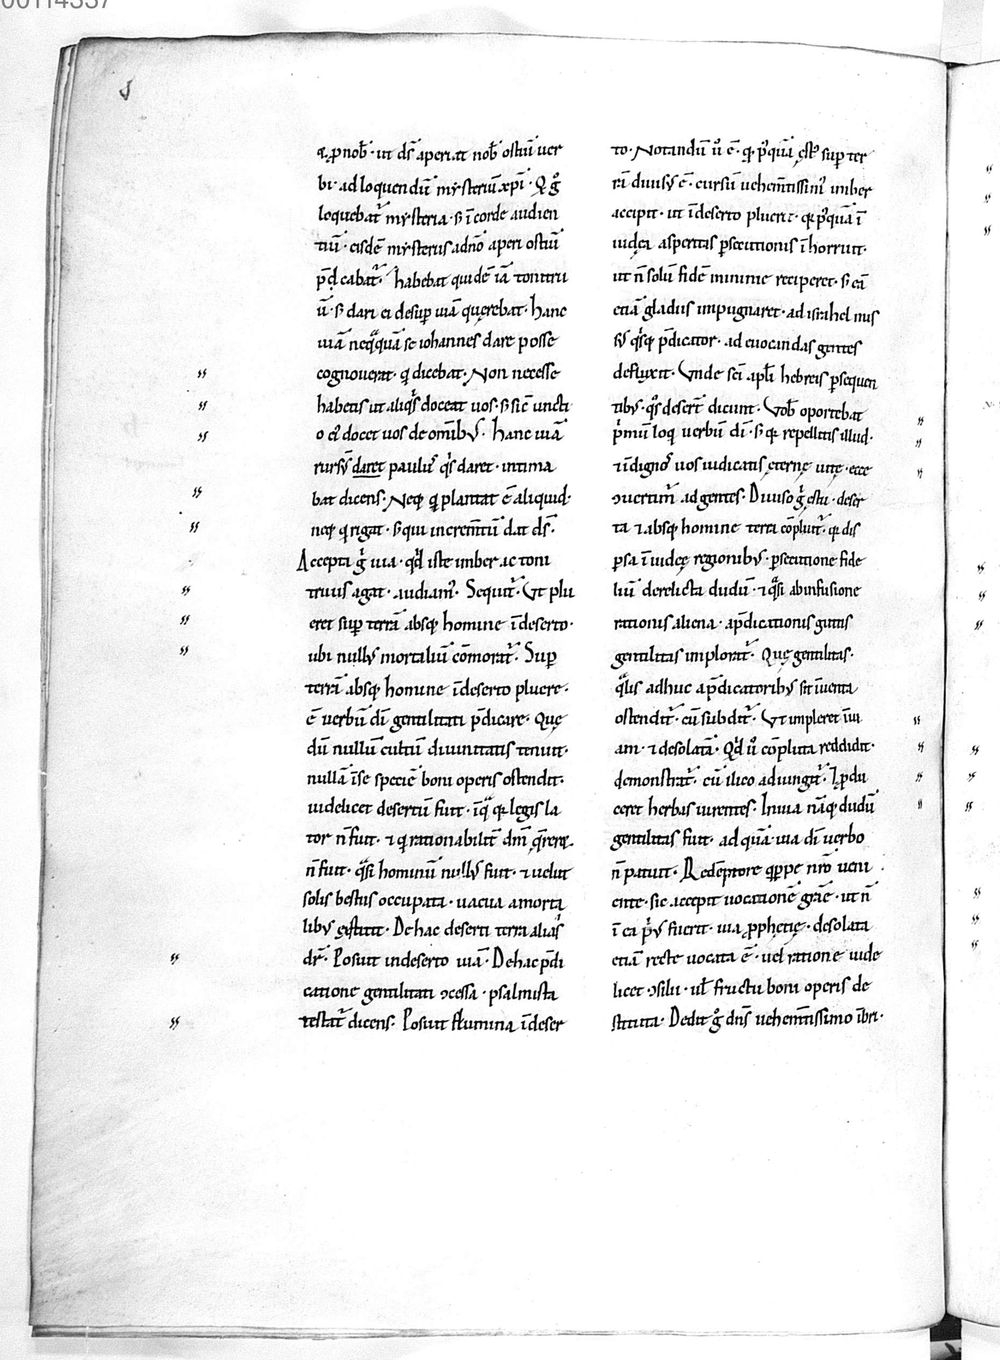 & p nob̄· ut ds̄ aperiat nob̄ ostiū uer
bi· ad loquendū mysteriū xp̄i· Q̇ g̊
loquebat᷑ mysteria· s; ī corde audien
tiū· eisdē mysteriis a dn̄o aperi ostiū
p̄dicabat᷑. habebat quidē iā tonitru
ū· s; dari ei desup̱ uiā quęrebat· hanc
uiā neq̄quā se iohannes dare posse
cognouerat· q̇ dicebat· Non necesse
habetis ut aliq̇s doceat uos· s; sic̄ uncti
o ei᷒ docet uos de om̄ib᷒. hanc uiā
rurs᷒ daret paulus q̇s daret· intima
bat dicens· Neq; q̇ plantat ē aliquid·
neq; q̇ rigat· s; qui increm̄tū dat ds̄·
Accepta g̊ uia· qd̄ iste imber ac toni
truus agat· audiam᷒. Sequit᷑. Vt plu
eret sup̱ terrā absq; homine ī deserto·
ubi null᷒ mortaliū cōmorat᷑. Sup̱
terrā absq; homine ī deserto pluere·
ē uerbū dī gentilitati p̄dicare· Quę
dū nullū cultū diuinitatis tenuit·
nullā ī se speciē boni operis ostendit·
uidelicet desertū fuit· ī qͣ q; legis la
tor n̄ fuit· & q̇ rationabilit̄ dm̄ q̄reret·
n̄ fuit· q̄si hominū null᷒ fuit· & uelut
solis bestiis occupata· uacua a morta
lib᷒ extitit· De hac deserti terra alias
dr̄· Posuit in deserto uiā· De hac p̄di
catione gentilitati ɔcessa· psalmista
testat᷑ dicens· Posuit flumina ī deser
to· Notandū ū ē· q; p᷒quā cęlū sup̱ ter
rā diuin᷒ ē· cursū uehem̄tissim᷒ imber
accipit· ut ī deserto plueret· q; p᷒quā ī
iudea asperitas p̱secutionis īhorruit·
ut n̄ solū fidē minime reciperet· s; eā
etiā gladiis impugnaret· ad israhel mis
s᷒ q̇sq; p̄dicator· ad euocandas gentes
defluxit· Vnde sc̄i apl̄i hebreis p̱sequen
tib᷒· q̇s deser̄t dicunt· Vob̄ oportebat
ṗmū loq̇ uerbū dī· s; q; repellitis illud·
& īdignos uos iudicatis ęternę uitę· ecce
ɔuertim᷒ ad gentes· Diuiso g̊ estu· deser
ta & absq; homine terra cōpluit᷑· q; dis
p̱sa ī iudeę regionib᷒· p̱secutione fide
liū derelicta dudū· & q̄si ab infusione
rationis aliena· a p̄dicationis guttis
gentilitas implorat᷑. Quę gentilitas·
q̄lis adhuc a p̄dicatorib᷒ sit īuenta
ostendit᷑. cū subdit᷑. Vt impleret īui
am· & desolatā· Qd̄ ū cōpluta reddidit·
demonstrat᷑. cū ilico adiungat᷑. Et p̱du
ceret herbas uirentes· Inuia nāq; dudū
gentilitas fuit· ad quā uia dī uerbo
n̄ patuit· Redēptore q̱ppe nr̄o ueni
ente· sic accepit uocationē grāe· ut n̄
ī ea ṗus fuerit· uia p̱phetię· desolata
etiā recte uocata ē· uel ratione uide
licet ɔsilii· ul̄ fructu boni operis de
stituta· Dedit g̊ dn̄s uehem̄tissimo ībri·